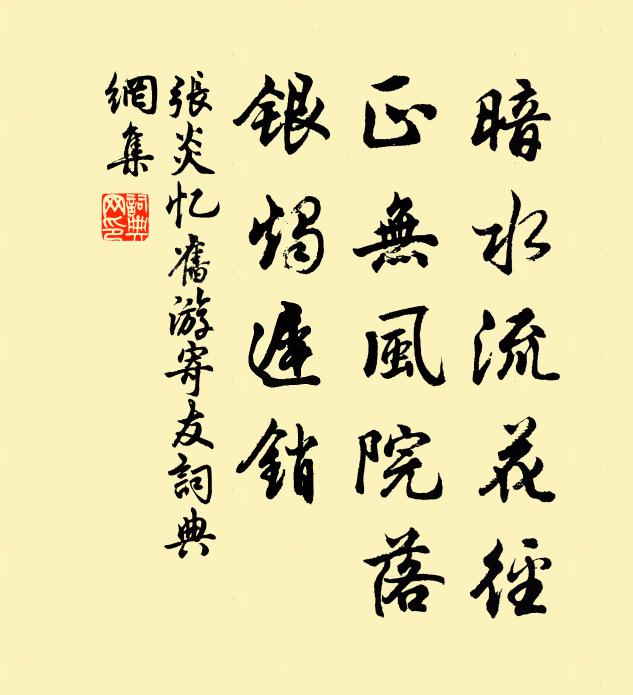 暗水流花徑
正無風院落
銀燭遲銷
張炎忆舊游寄友詞典
網集
詞典
网印